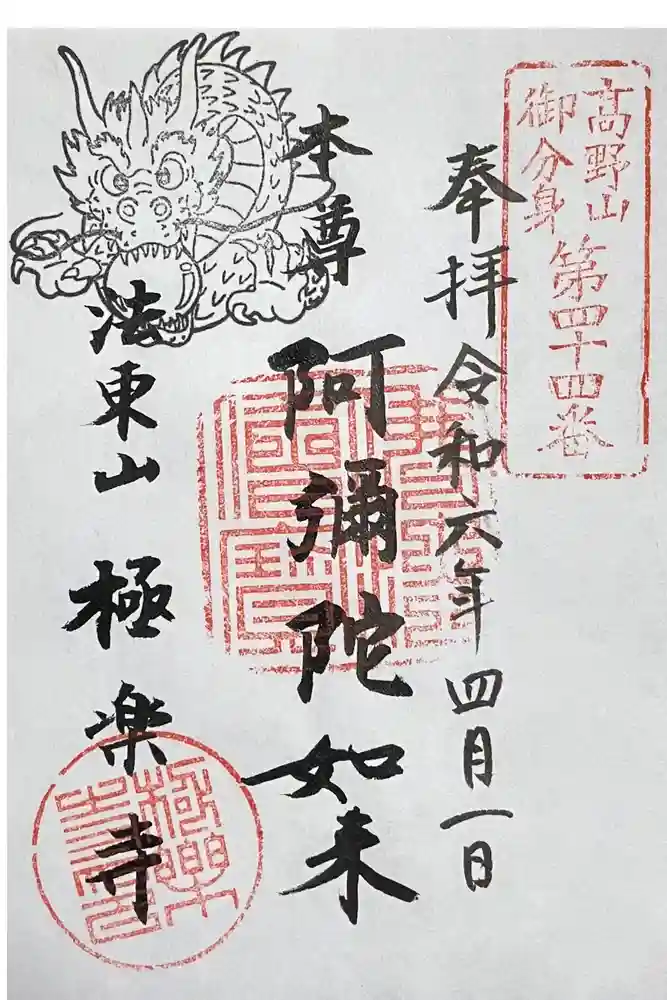 高野山
御分身
第四十四番
奉拝 令和六年四月一日
本尊 阿彌陀如来
法東山 極楽寺
極樂寺